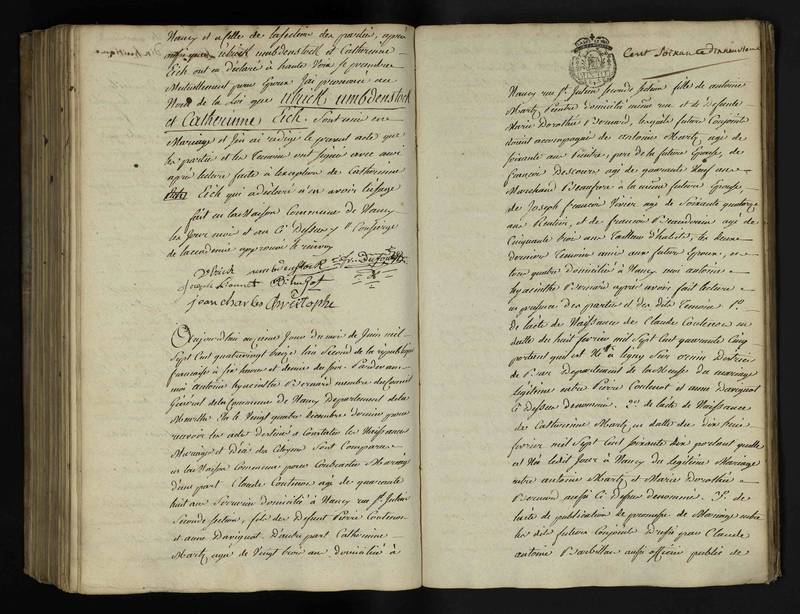 Nancy et a celle de la section des parties, après
ulrick umbdenstock et Catherinne
Eich ont eu declaré a haute voix se prendre
mutuellement pour Epoux J'ai prononcé au
Nom de la Loi que ulrick umbdenstock
et Catherinne Eich sont unis en
Mariage et J'en ai redigé le present acte que
les parties et les temoins ont signés avec moi
après lecture faite à l'exception de Catherinne
Eich qui a declaré n'en avoir l'usage
fait en la Maison Commune de Nancy
les Jour mois et an Cy Dessus
de la academie approuvé
Ulrick umbdenstock
jean charles Christophe
Aujourd'hui onzieme Jour du mois de Juin mil
Sept Cent quatrevingt treize l'an Second de la république
françoise à six heures et demies du soir Pardevant
moi antoine hyacinthe Bernard membre du Conseil
Général de la Commune de Nancy Departement de la
Meurthe Elu le vingt quatre decembre dernier pour
recevoir les actes destinés a Constater les Naissances
Mariages et Décès des Citoyens Sont Comparus
en la Maison Commune pour Contracter Mariage
d'une part Claude Coutenot agé de quarante
huit ans Serrurier domicilié à Nancy rue St Julien
Seconde section, fils des Defunt Pierre Coutenot
et anne Davignot. D'autre part Catherinne
Martz agée de Vingt trois ans domiciliée à
Cent Soixante Dixneuvieme
Nancy rue St Julien seconde section fille de antoine
Martz Peintre Domicilié même rue et de Defunte
Marie Dorothée Bernard, lesquels futurs Conjoints
étoient accompagnés de antoine Martz agé de
soixante ans Peintre, pere de la future Epouse, de
françois Descours agé de quarante Neuf ans
Marchand Beaufrere à la même future Epouse,
de Joseph francois agé de Soixante quatorze
ans Rentier, et de francois agé de
Cinquante trois ans Tailleur d'habits, les deux
derniers Temoins amis aux futurs Epoux,
tous quatre Domiciliés à Nancy moi antoine
hyacinthe Bernard après avoir fait lecture
en presence des parties et des dits Temoins 1°
de l'acte de Naissance de Claude Coutenot en
datte du huit fevrier mil Sept Cent quarante Cinq
portant qu'il est Né à Ligny Sur ornain District
de Bar Departement de la Meuse du mariage
légitime entre Pierre Coutenot et anne Davignot
Cy Dessus denommés. 2° de l'acte de Naissance
de Catherinne Martz en datte du Dix huit
fevrier mil Sept Cent soixante dix portant quelle
est Née ledit Jour à Nancy du légitime Mariage
entre antoine Martz et Marie Dorothée
Bernard aussi Cy Dessus denommés. 3° de
l'acte de publication de promesse de Mariage entre
les dits futurs Conjoints dressé par Claude
antoine aussi officier public de